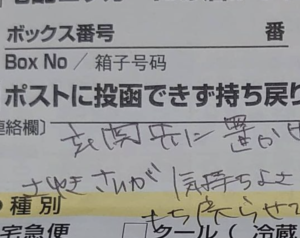 ボックス番号 番
Box No / 箱子号码
ポストに投函できず持ち戻り
連絡欄〕 玄関先に置かせ
気持ちよさ
●種別 もち戻らせて
宅急便 クール(冷蔵